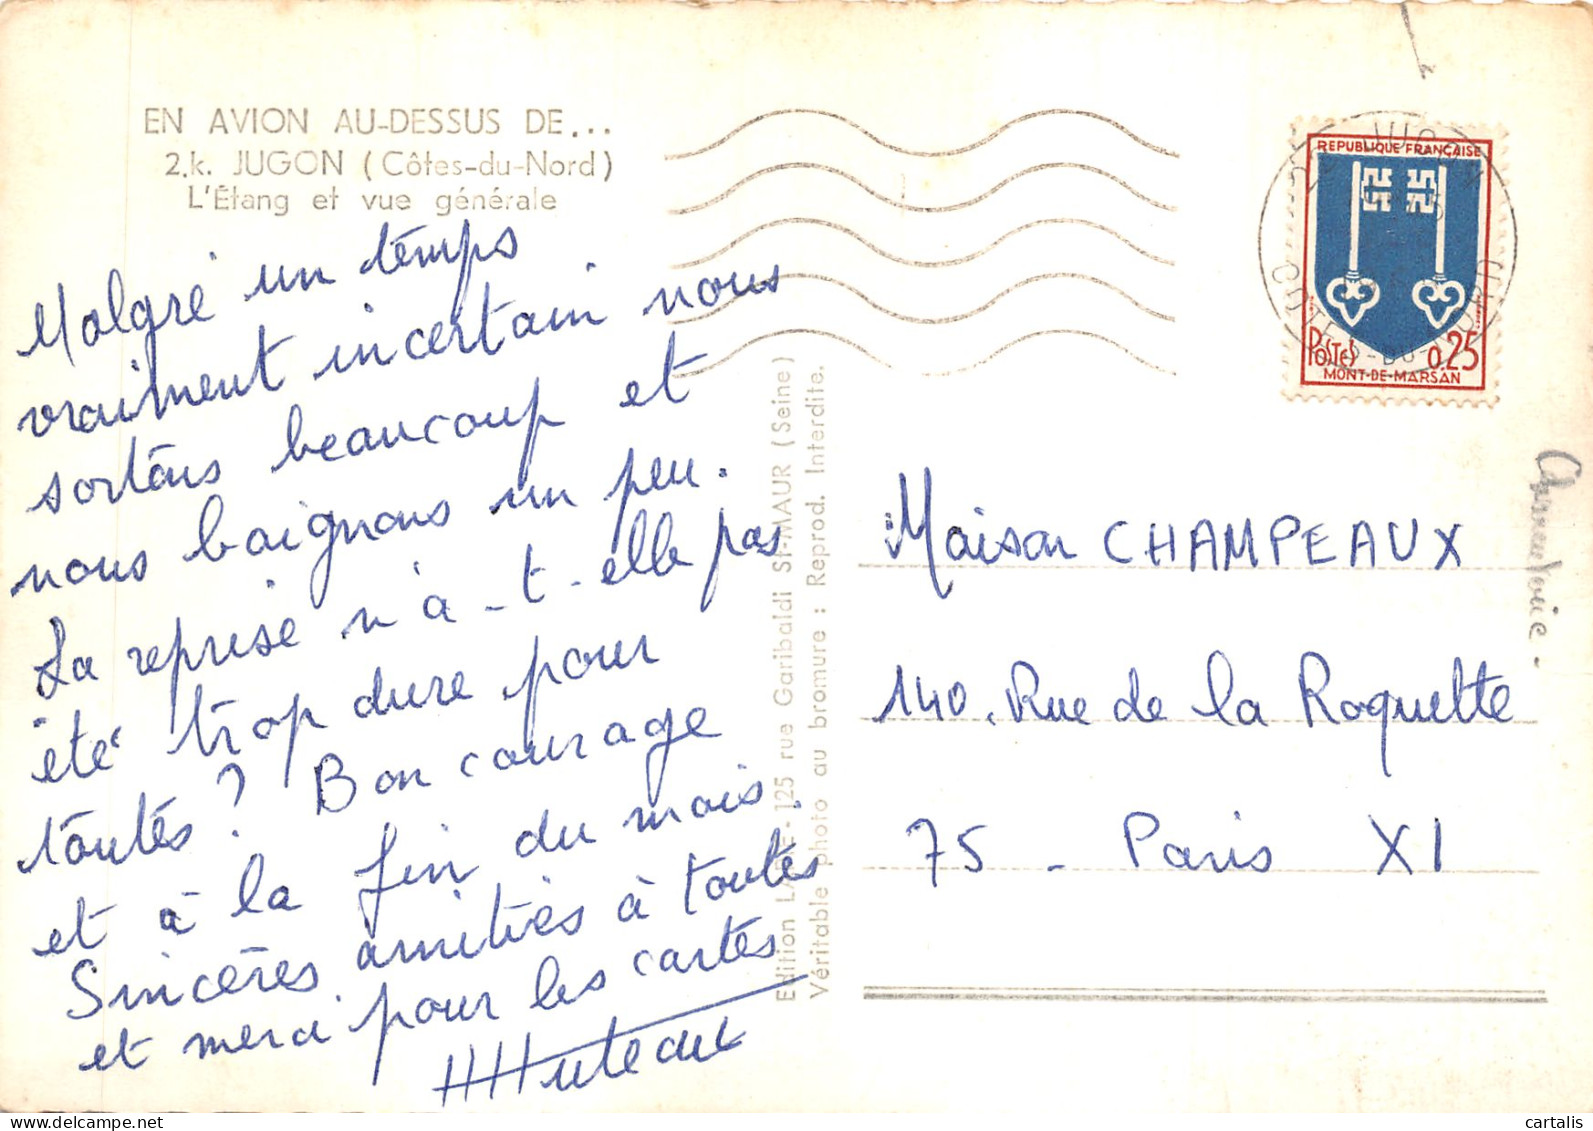 EN AVION AU-DESSUS DE...
2.k. JUGON (Côtes-du-Nord)
L'Étang et vue générale
Malgré un temps
vraiment incertain nous
sortons beaucoup et
nous baignons un peu.
La reprise n'a-t-elle pas
été trop dure pour
toutes ? Bon courage
et à la fin du mois.
Sincères amitiés à toutes
et merci pour les cartes
Edition LAPIE - 125 rue Garibaldi St-MAUR (Seine)
Véritable photo au bromure : Reprod. Interdite.
REPUBLIQUE FRANÇAISE
POSTES 0.25
MONT-DE-MARSAN
JUGON
COTES-DU-NORD
Maison CHAMPEAUX
140, Rue de la Roquette
75 - Paris XI
cartalis